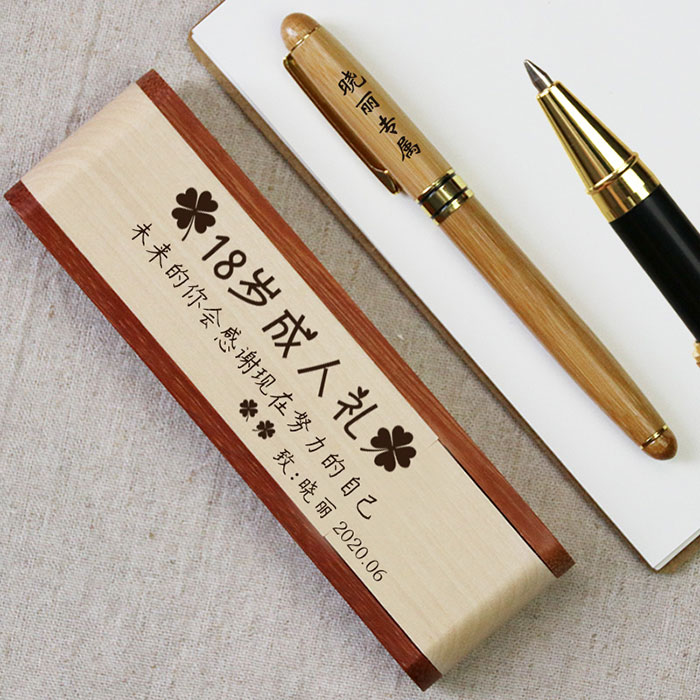 18岁成人礼
未来的你会感谢现在努力的自己
致:晓丽 2020.06
晓丽专属